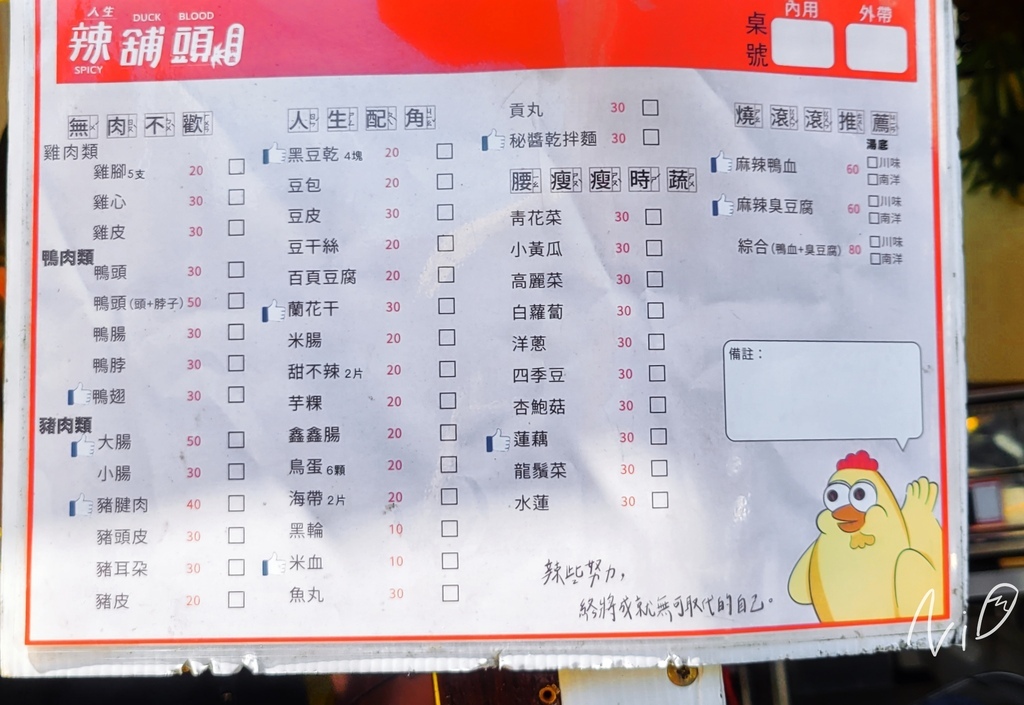 人生
DUCK BLOOD
辣舖頭
SPICY
桌號
內用
外帶
無肉不歡
雞肉類
雞腳5支 20
雞心 30
雞皮 30
鴨肉類
鴨頭 30
鴨頭(頭+脖子) 50
鴨腸 30
鴨脖 30
鴨翅 30
豬肉類
大腸 50
小腸 30
豬腱肉 40
豬頭皮 30
豬耳朵 30
豬皮 20
人生配角
黑豆乾 4塊 20
豆包 20
豆皮 30
豆干絲 20
百頁豆腐 20
蘭花干 30
米腸 20
甜不辣 2片 20
芋粿 20
鑫鑫腸 20
鳥蛋 6顆 20
海帶 2片 20
黑輪 10
米血 10
魚丸 30
貢丸 30
秘醬乾拌麵 30
腰瘦瘦時蔬
青花菜 30
小黃瓜 30
高麗菜 30
白蘿蔔 30
洋蔥 30
四季豆 30
杏鮑菇 30
蓮藕 30
龍鬚菜 30
水蓮 30
燒滾滾推薦
湯底
麻辣鴨血 60 川味
南洋
麻辣臭豆腐 60 川味
南洋
綜合(鴨血+臭豆腐) 80 川味
南洋
備註：
辣些努力，
終將成就無可取代的自己。